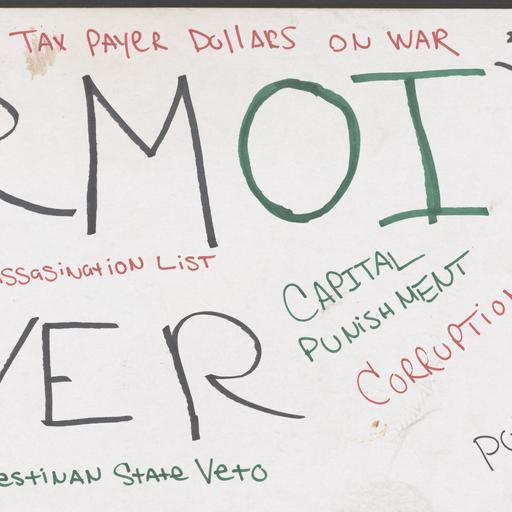 TAX PAYER DOllARS ON WAR
RMOI
ASSASINATION LIST
CAPITAL
PUNISHMENT
VER
CORRUPTION
PO
ESTINAN STATE VETO